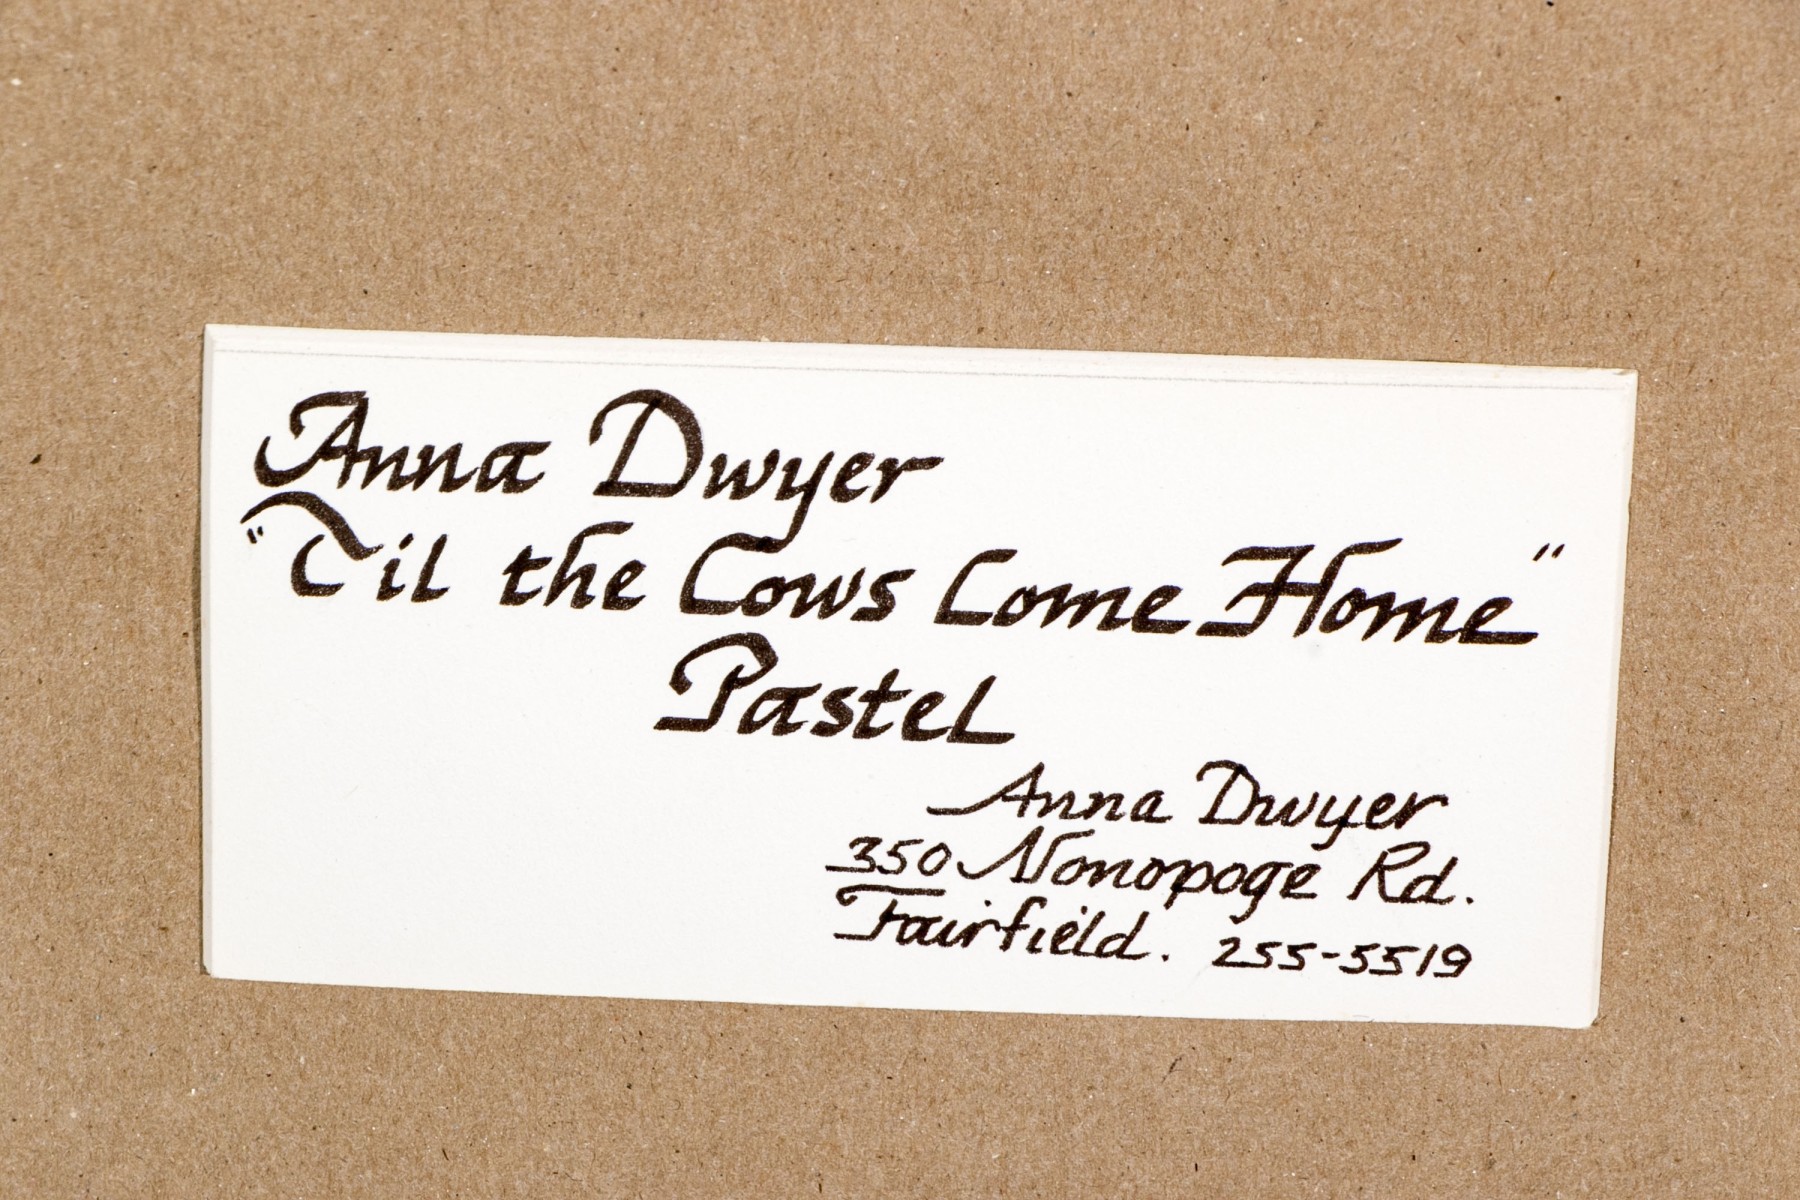 Anna Dwyer
"Til the Cows Come Home"
Pastel
Anna Dwyer
350 Nonopoge Rd.
Fairfield. 255-5519